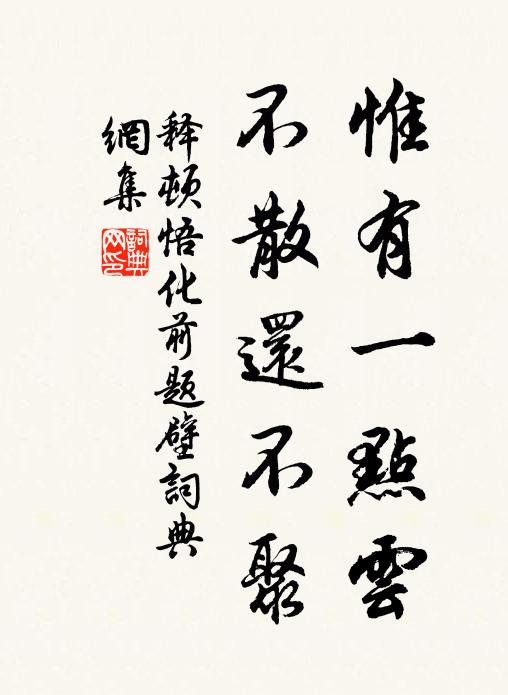 惟有一點雲
不散還不聚
释頓悟化前題壁詞典
網集
詞典網印